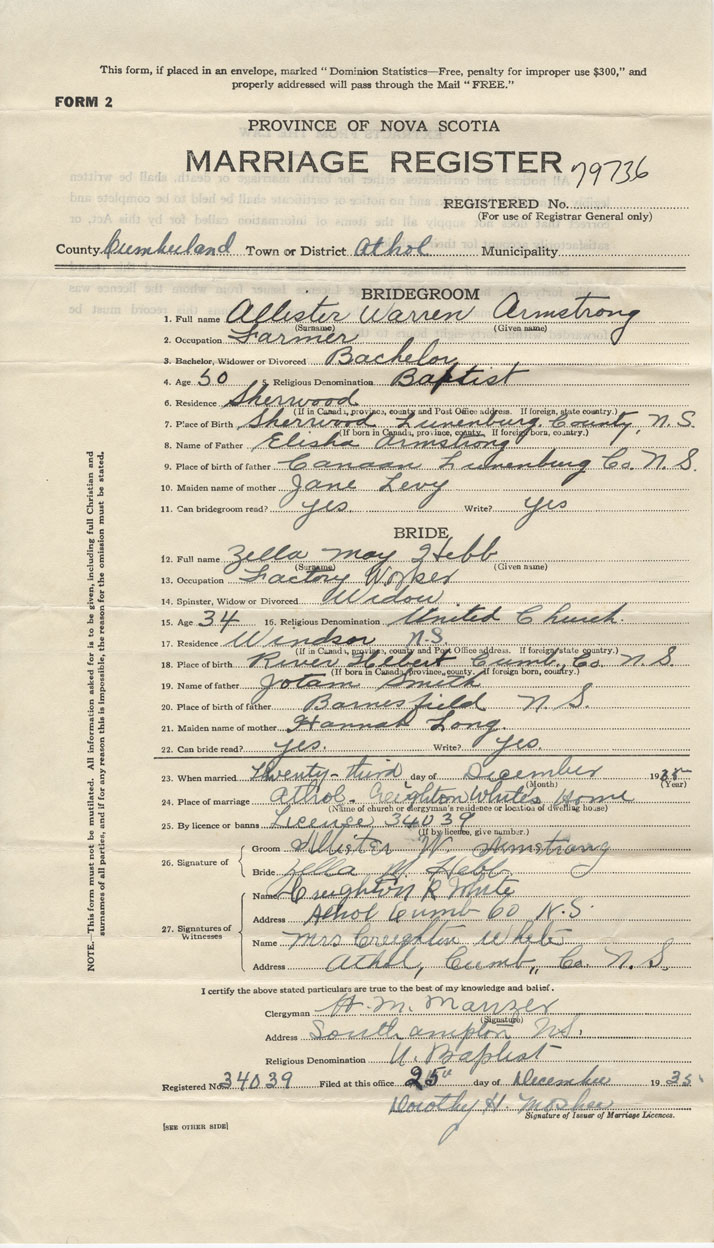 This form, if placed in an envelope, marked "Dominion Statistics—Free, penalty for improper use $300," and
properly addressed will pass through the Mail "FREE."
FORM 2
PROVINCE OF NOVA SCOTIA
MARRIAGE REGISTER 79736
REGISTERED No.
(For use of Registrar General only)
County Cumberland Town or District Athol Municipality
BRIDEGROOM
1. Full name Allister Warren Armstrong
(Surname) (Given name)
2. Occupation Farmer
3. Bachelor, Widower or Divorced Bachelor
4. Age 50 5. Religious Denomination Baptist
6. Residence Sherwood
(If in Canada, province, county and Post Office address. If foreign, state country.)
7. Place of Birth Sherwood Lunenburg County, N.S.
(If born in Canada, province, county. If foreign born, country.)
8. Name of Father Elisha Armstrong
9. Place of birth of father Canaan Lunenburg Co. N.S.
10. Maiden name of mother Jane Levy
11. Can bridegroom read? yes. Write? yes
BRIDE
12. Full name Zella May Hebb
(Surname) (Given name)
13. Occupation Factory Worker
14. Spinster, Widow or Divorced Widow
15. Age 34 16. Religious Denomination United Church.
17. Residence Windsor N.S.
(If in Canada, province, county and Post Office address. If foreign state country.)
18. Place of birth River Hebert Cumb., Co. N.S.
(If born in Canada, province, county. If foreign born, country.)
19. Name of father Jotam Smith
20. Place of birth of father Barnesfield N.S.
21. Maiden name of mother Hannah Long.
22. Can bride read? yes. Write? yes.
23. When married Twenty-third day of December 1935
(Month) (Year)
24. Place of marriage Athol - Creighton White's Home
(Name of church or clergyman's residence or location of dwelling house)
25. By licence or banns License 34039
(If by licence, give number.)
26. Signature of
Groom Allister W. Armstrong
Bride Zella M. Hebb
27. Signatures of Witnesses
Name Creighton R White
Address Athol Cumb Co N.S.
Name Mrs Creighton White
Address Athol, Cumb., Co. N.S.
I certify the above stated particulars are true to the best of my knowledge and belief.
Clergyman H. M. Manzer
(Signature)
Address Southampton N.S.
Religious Denomination U. Baptist
Registered No. 34039 Filed at this office 25th day of December 1935
Dorothy H. Mosher
Signature of Issuer of Marriage Licences.
[SEE OTHER SIDE]
NOTE.—This form must not be mutilated. All information asked for is to be given, including full Christian and
surnames of all parties, and if for any reason this is impossible, the reason for the omission must be stated.